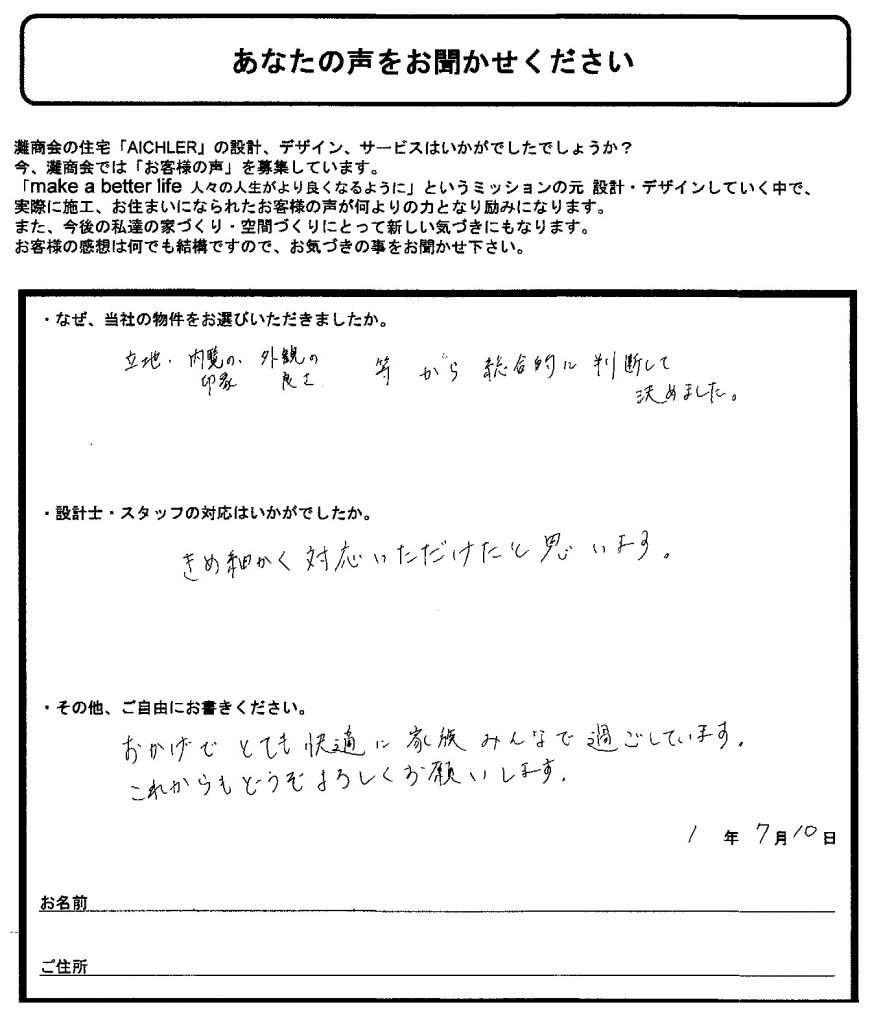 あなたの声をお聞かせください
灘商会の住宅「AICHLER」の設計、デザイン、サービスはいかがでしたでしょうか？
今、灘商会では「お客様の声」を募集しています。
「make a better life 人々の人生がより良くなるように」というミッションの元 設計・デザインしていく中で、
実際に施工、お住まいになられたお客様の声が何よりの力となり励みになります。
また、今後の私達の家づくり・空間づくりにとって新しい気づきにもなります。
お客様の感想は何でも結構ですので、お気づきの事をお聞かせ下さい。
・なぜ、当社の物件をお選びいただきましたか。
立地、内覧の印象、外観の良さ 等 から 総合的に 判断して
決めました。
・設計士・スタッフの対応はいかがでしたか。
きめ細かく対応いただけたと思います。
・その他、ご自由にお書きください。
おかげでとても快適に家族みんなで過ごしています。
これからもどうぞよろしくお願いします。
1 年 7月10日
お名前
ご住所